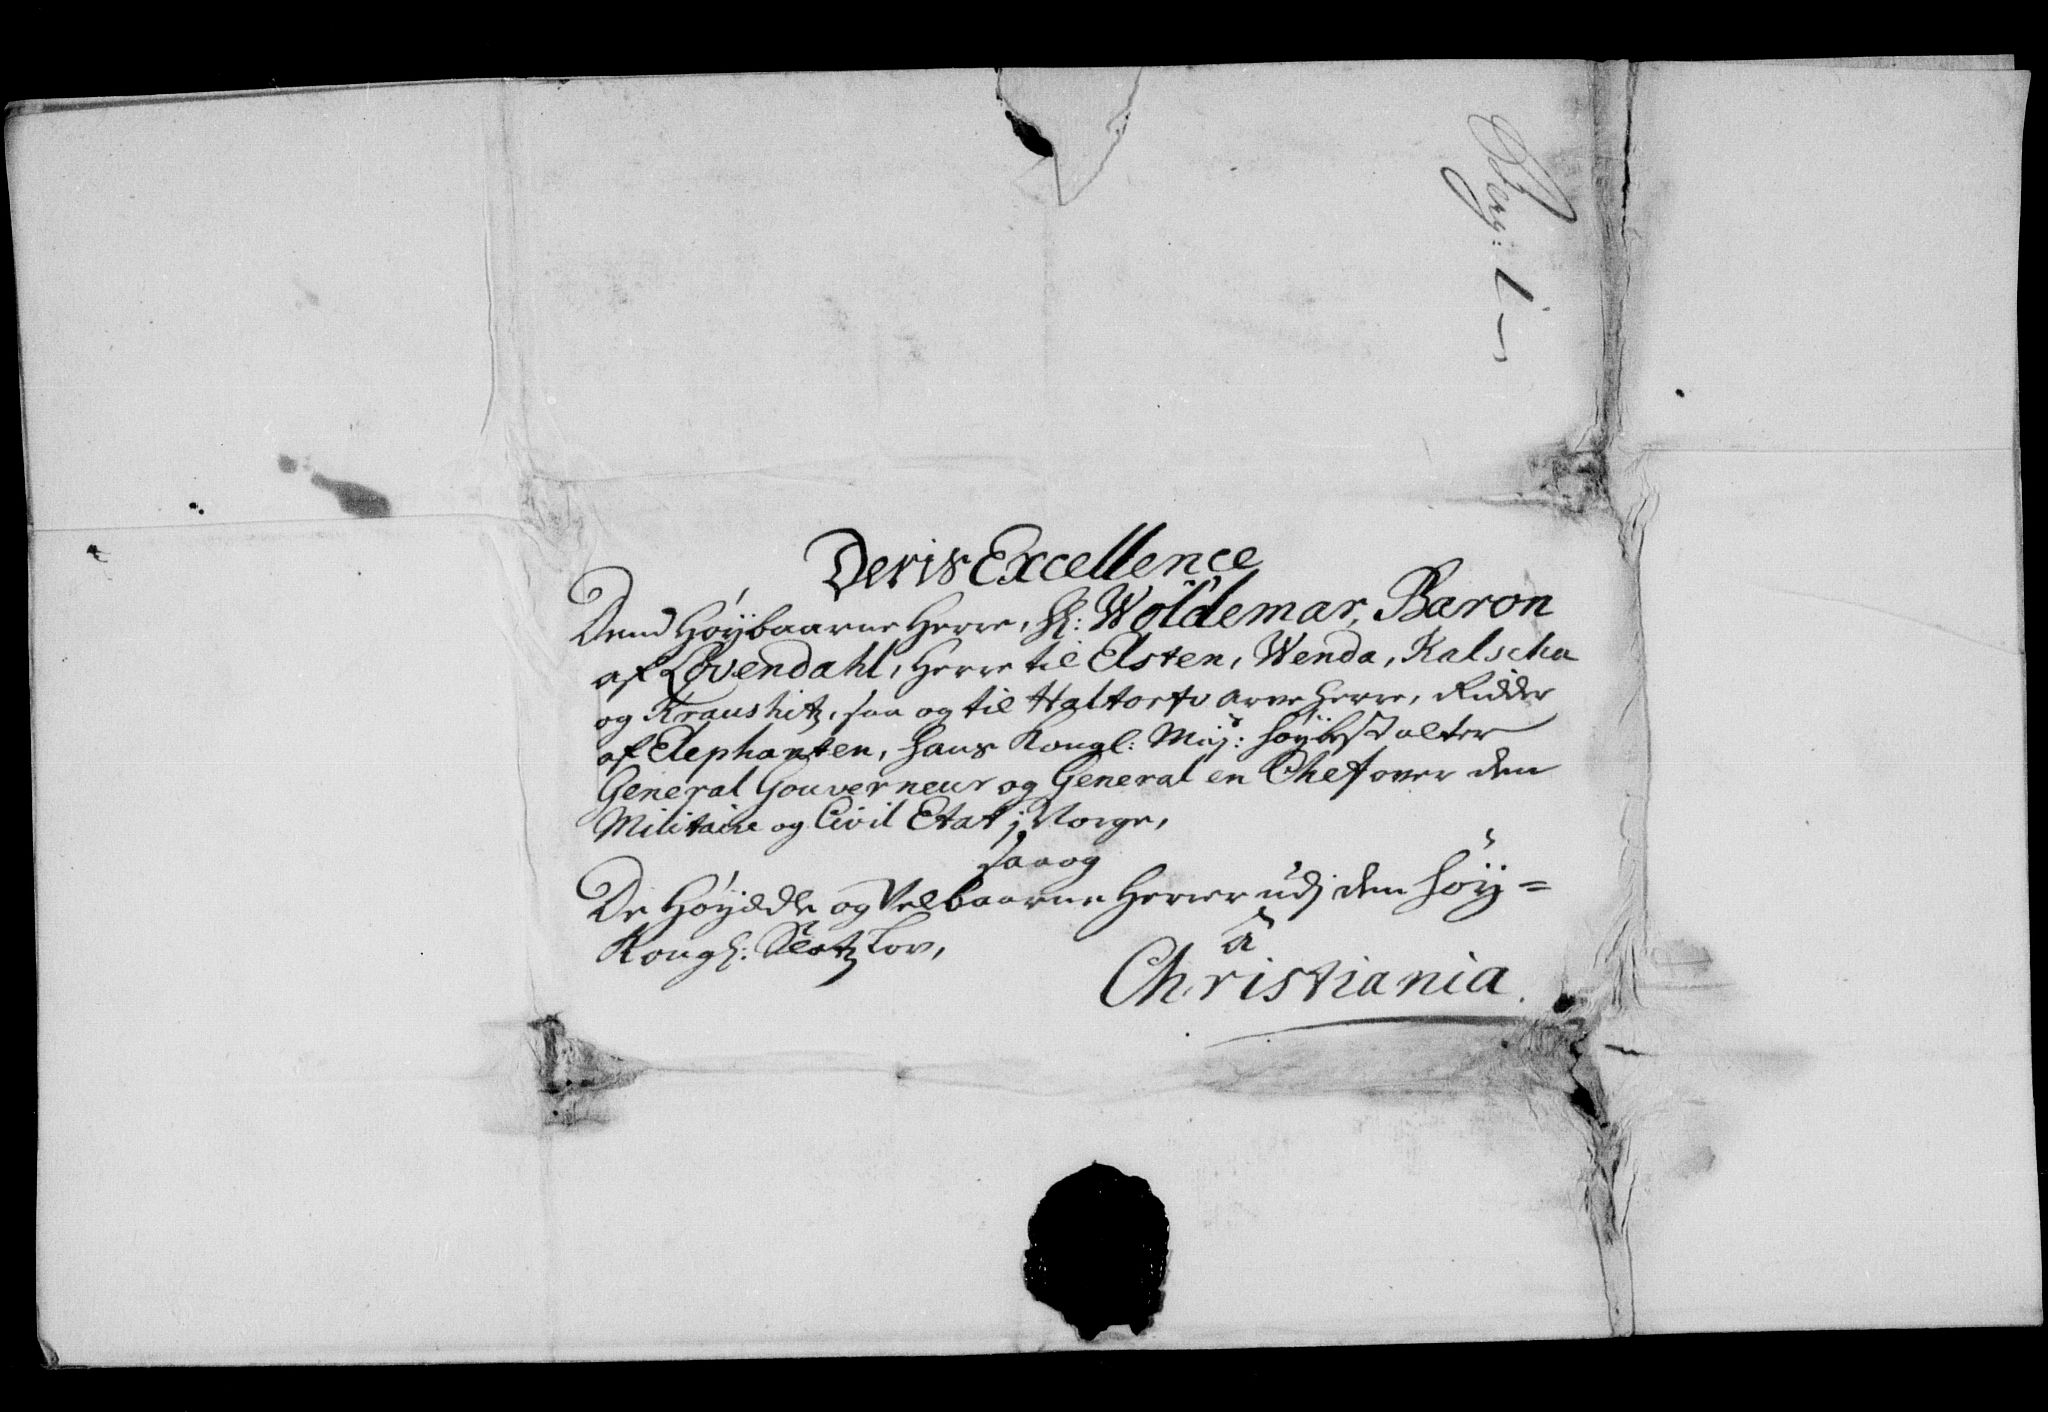 Deris Excellence
Dend Høÿbaarne Herre, H: Woldemar, Baron
af Løvendahl, Herre til Elsten, Wenda, Kalscha
og Kraushitz, saa og til Haltorfv arve Herre, Ridder
af Elephanten, Hans Kongl: Maj: Høÿbestalter
General Gouverneur og General en Chef over den
Militaire og Civil Etat j Norge,
saa og
De Høÿædle og Velbaarne Herrer udj den Høÿ=
Kongl: Slotz Lov,
â
Christiania.